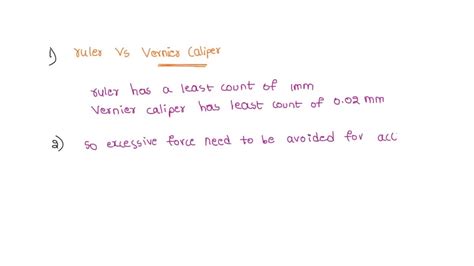 1) ruler Vs Vernier Caliper
ruler has a least count of 1mm
Vernier caliper has least count of 0.02 mm
2) so excessive force need to be avoided for acc